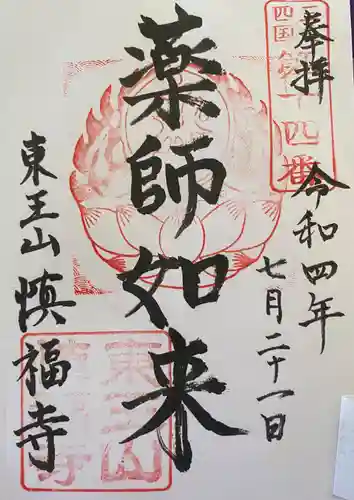 奉拝
令和四年
七月二十一日
薬師如来
東王山慎福寺
四国
第十四番
東王山